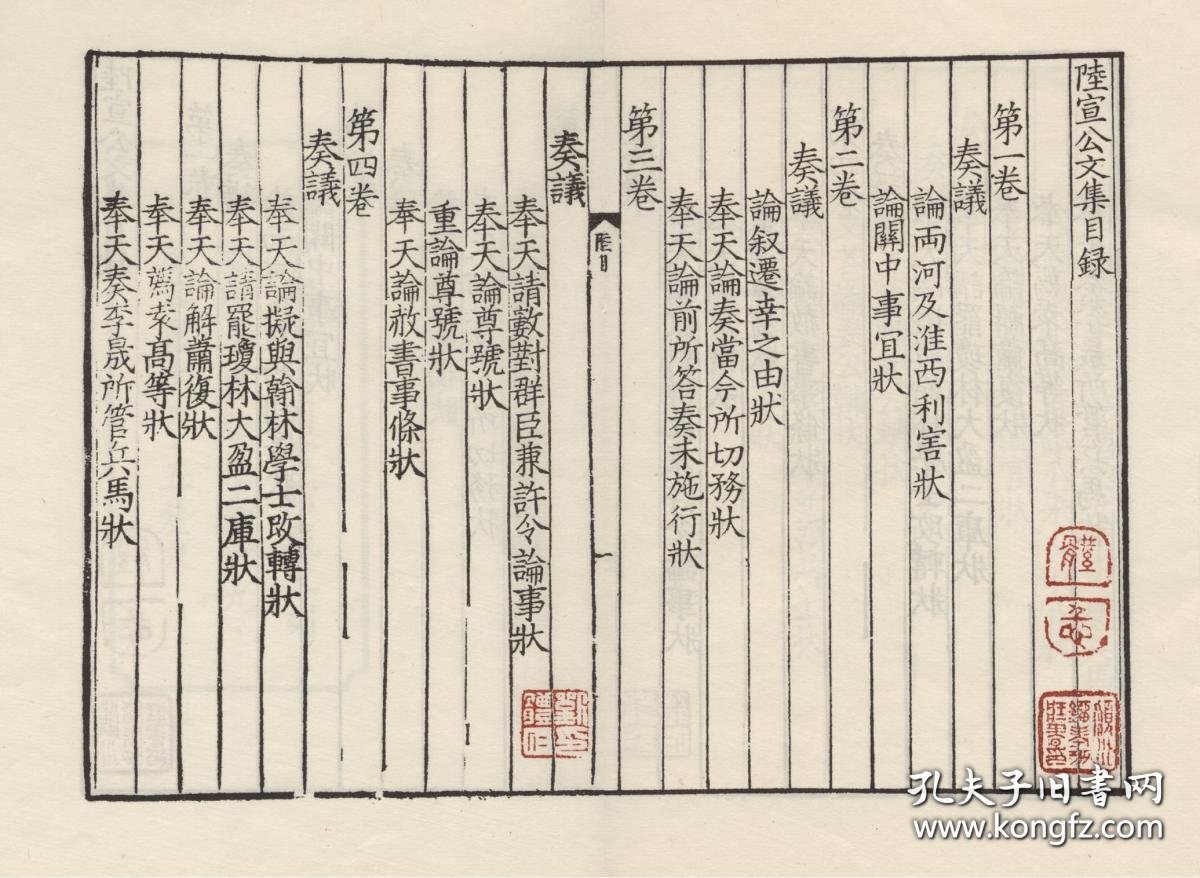 陸宣公文集目録
第一卷
奏議
論兩河及淮西利害狀
論關中事宜狀
第二卷
奏議
論叙遷幸之由狀
奉天論奏當今所切務狀
奉天論前所答奏未施行狀
第三卷
陸目
一
奏議
奉天請數對群臣兼許令論事狀
奉天論尊號狀
重論尊號狀
奉天論赦書事條狀
第四卷
奏議
奉天論擬與翰林學士改轉狀
奉天請罷瓊林大盈二庫狀
奉天論解蕭復狀
奉天薦袁高等狀
奉天奏李晟所管兵馬狀
孔夫子旧书网
www.kongfz.com